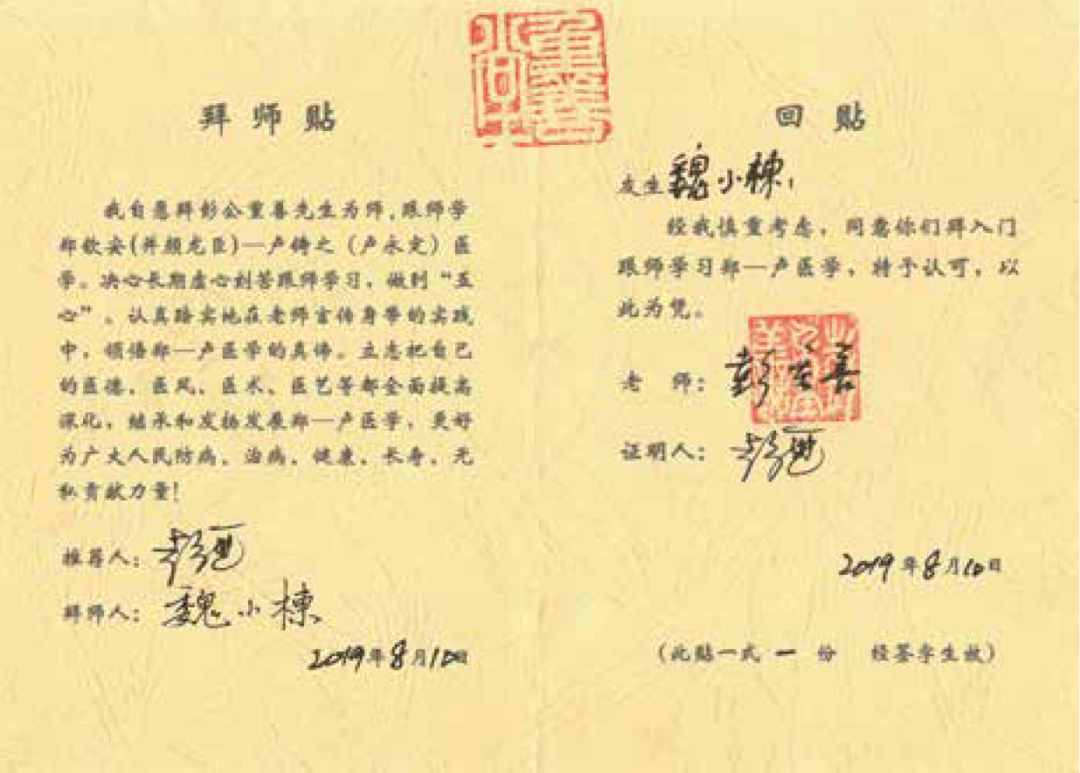 拜师贴
我自愿拜彭公重善先生为师,跟师学
郑钦安(并颜龙臣)—卢铸之(卢永定)医
学。决心长期虚心刻苦跟师学习,做到“五
心”、认真踏实地在老师言传身带的实践
中,领悟郑—卢医学的真谛。立志把自己
的医德、医风、医术、医艺等都全面提高
深化,继承和发扬发展郑—卢医学,更好
为广大人民防病、治病、健康、长寿、无
私贡献力量!
推荐人:彭
拜师人:魏小栋
2019年8月10日
回贴
友生魏小栋:
经我慎重考虑,同意你们拜入门
跟师学习郑—卢医学,特予认可,以
此为凭。
老 师:彭重善
证明人:彭
2019年8月10日
(此贴一式一份 经签字生效)